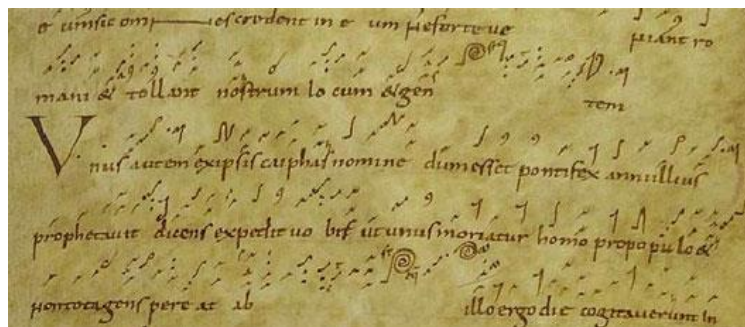 e umsic omnes credent in e um neforte ve niant ro
mani & tollant nostrum lo cum & gen tem
Vnus autem exipsis caiphas nomine dum esset pontifex anni illius
prophetavit dicens expedit vo bis ut unus moriatur homo pro populo &
non tota gens pere at ab illo ergo die cogitaverunt in